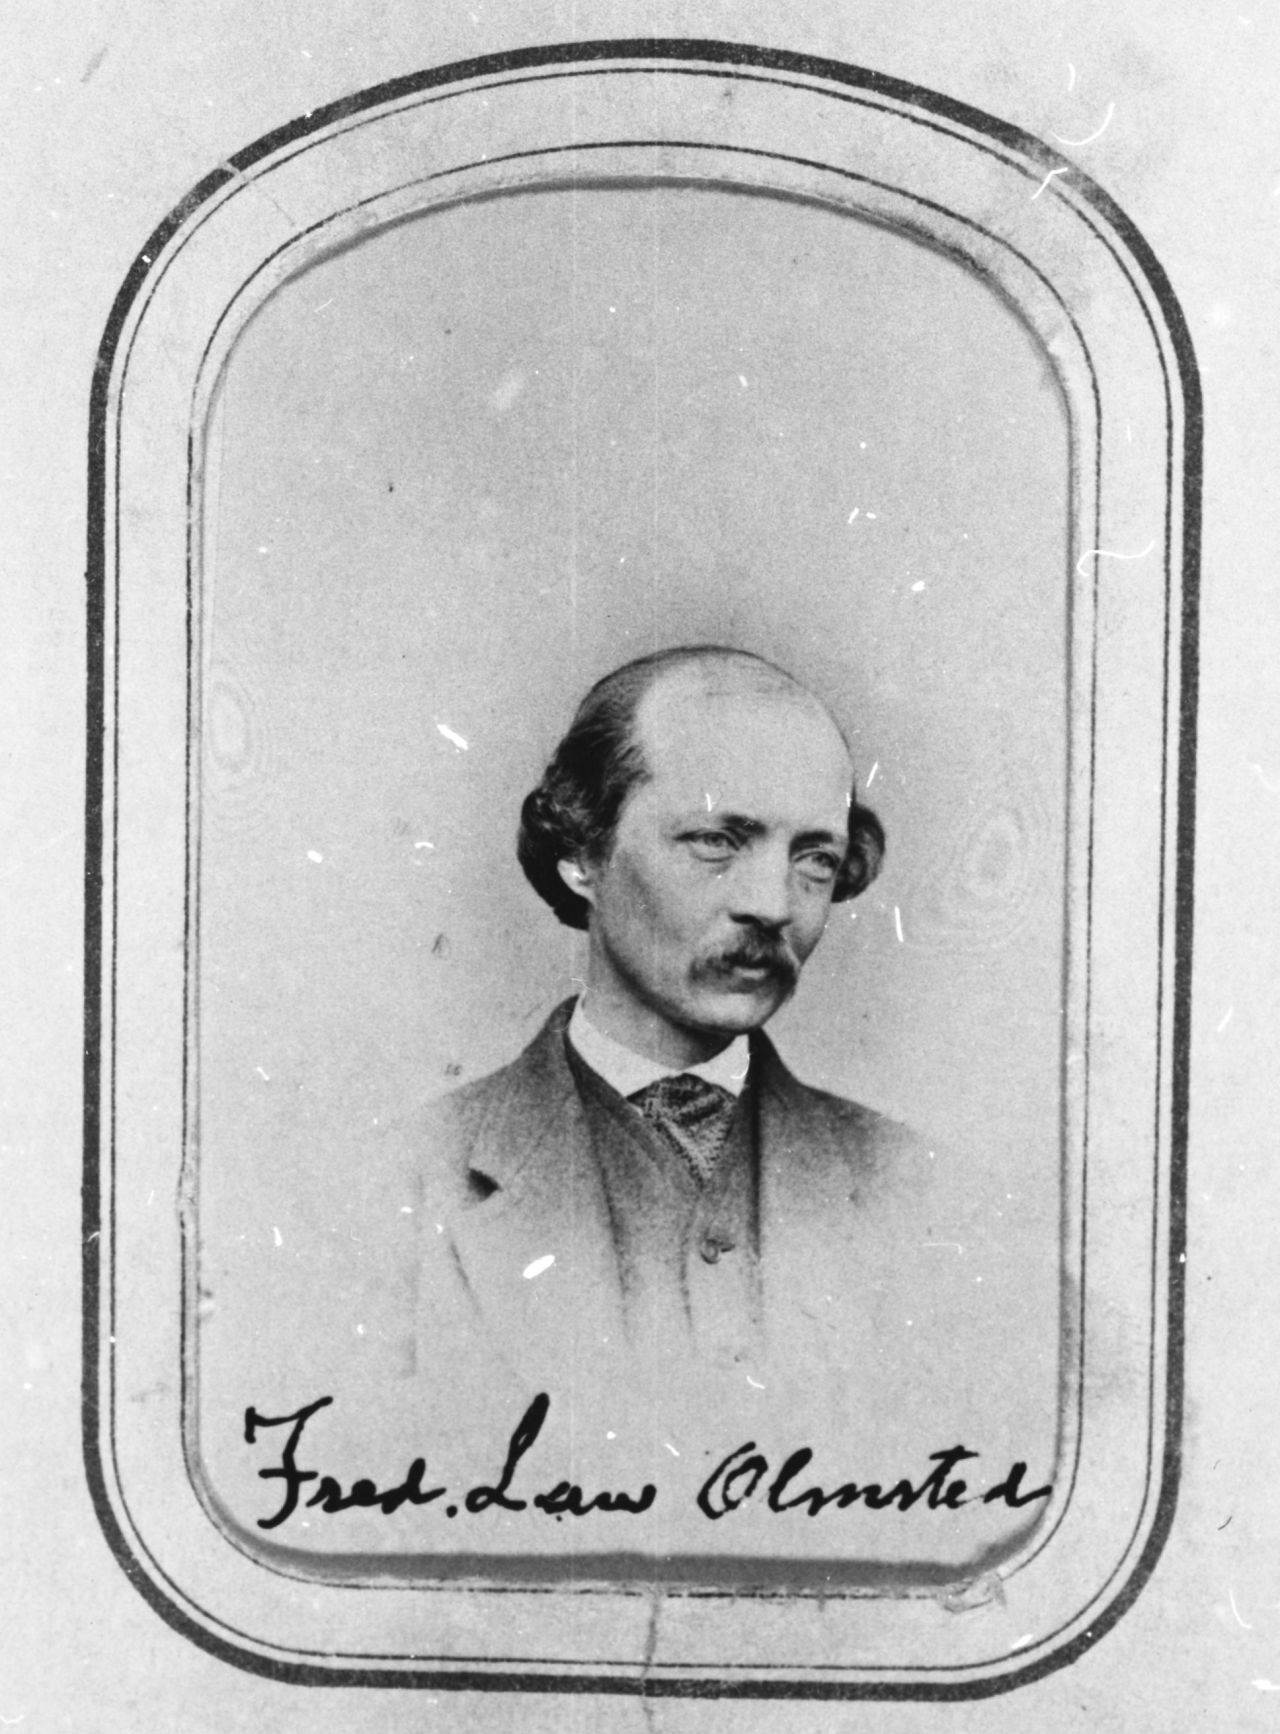 Fred. Law Olmsted